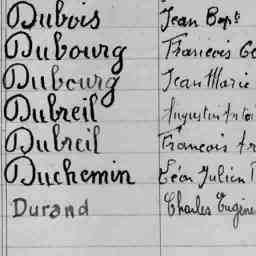 Dubois Jean Bapt
Dubourg Francois Ge
Dubourg Jean Marie
Dubreil Augustin Antoi
Dubreil Francois Fr
Duchemin Léon Julien
Durand Charles Eugène